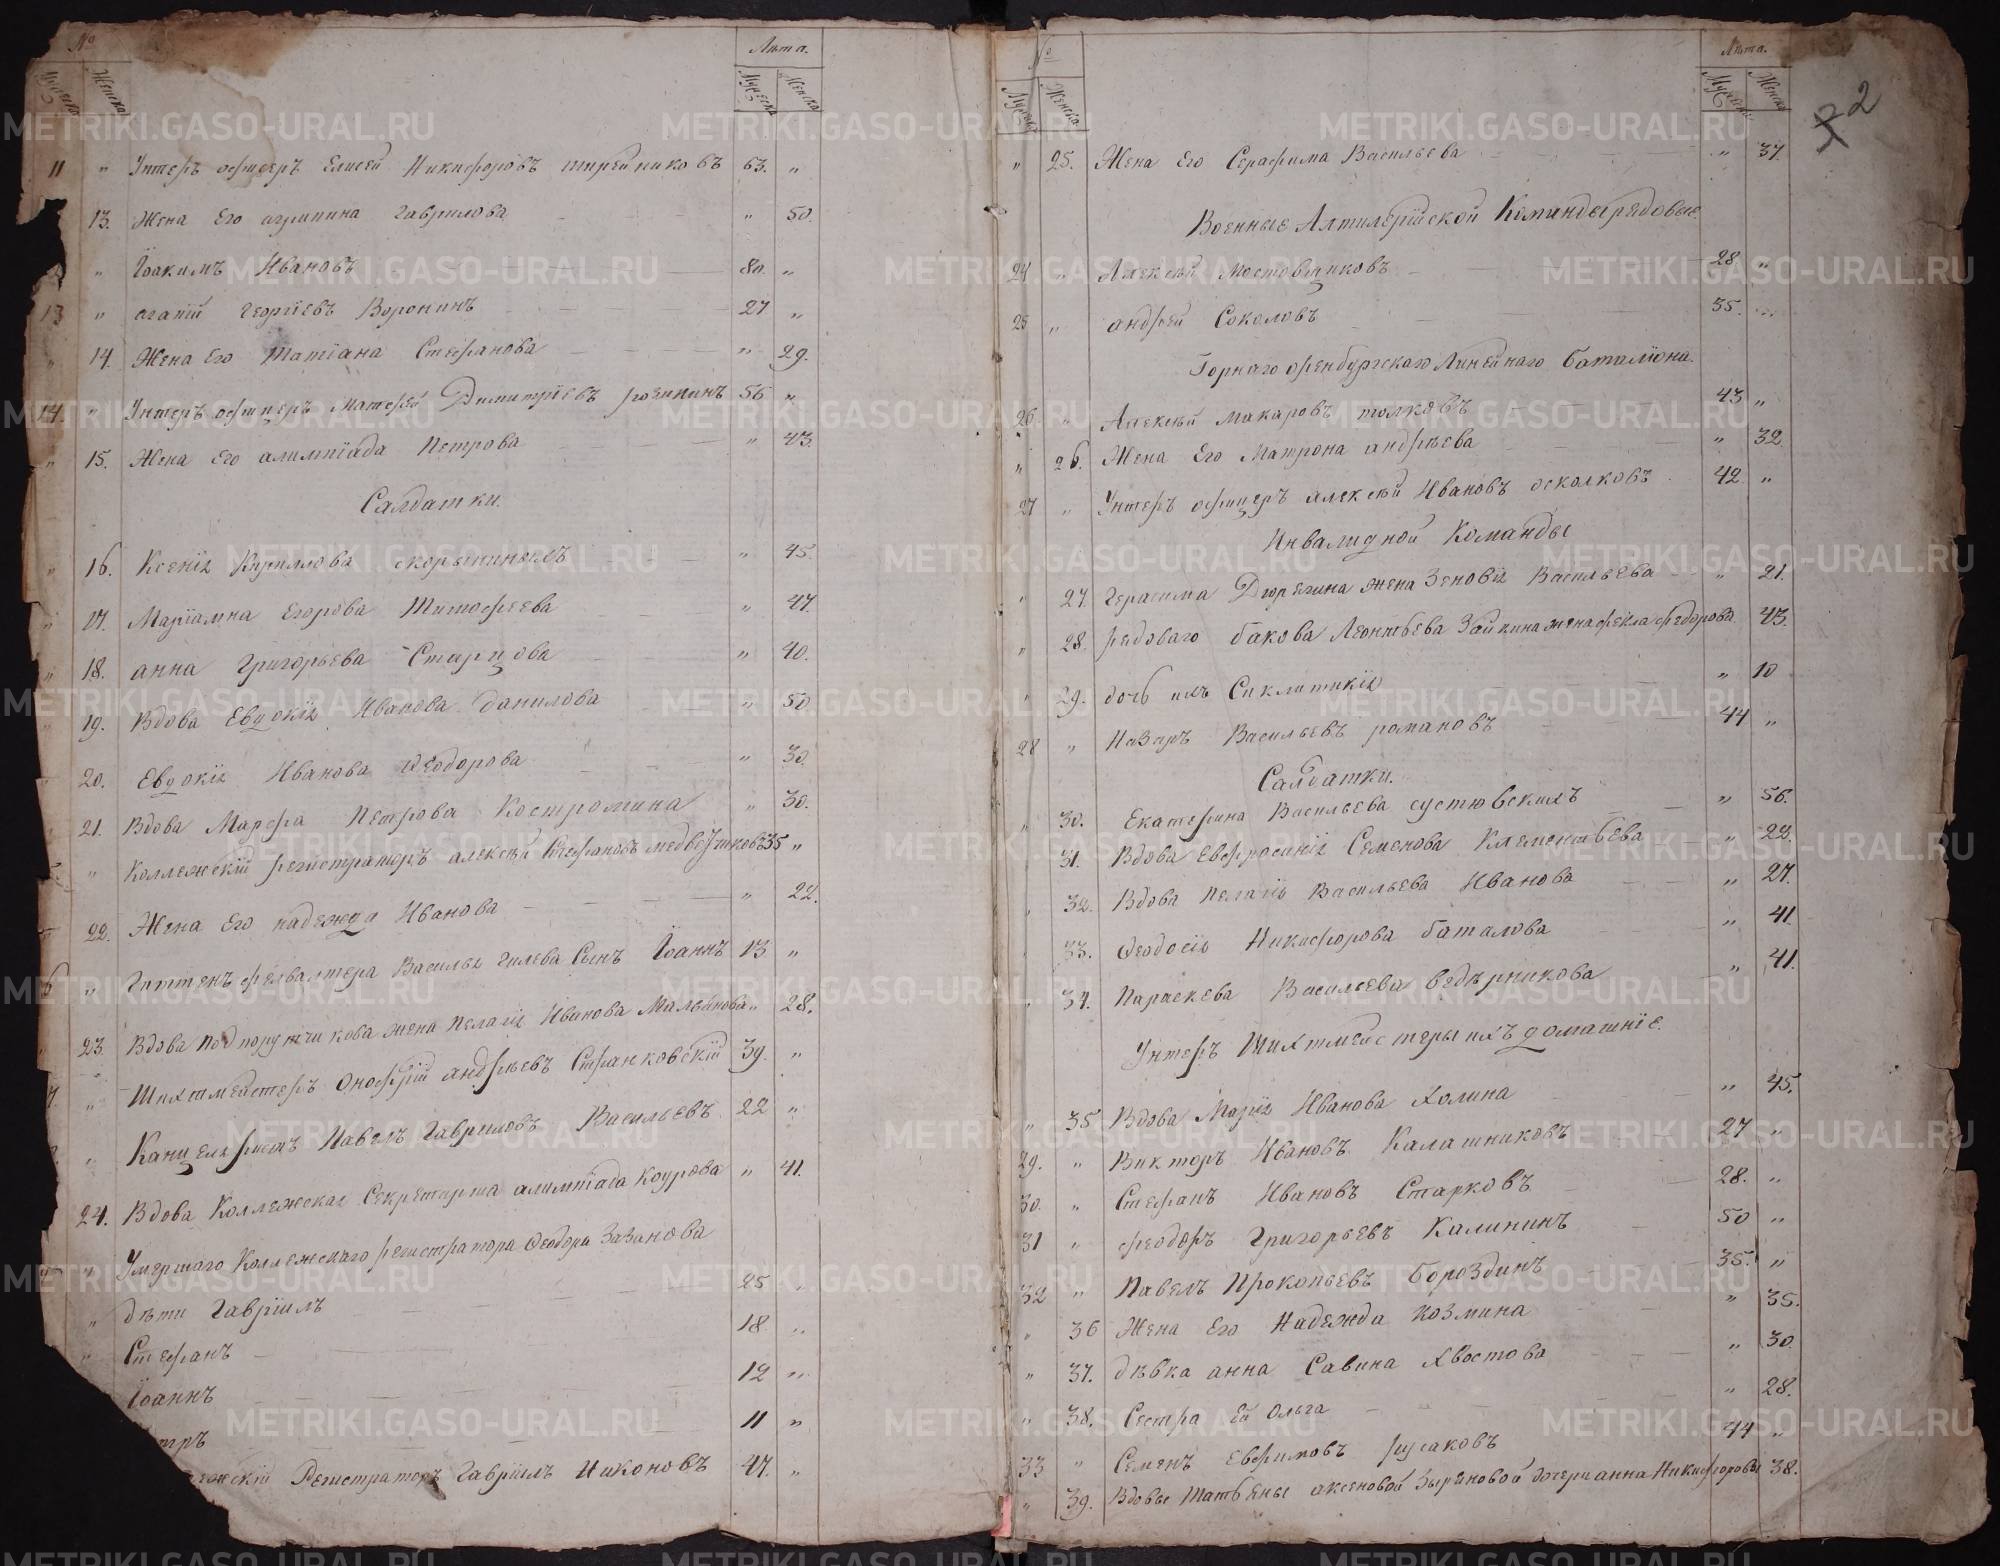 №
Лѣта.
Мужеска
Женска
Мужеска
Женска
11 " Унтеръ офицеръ Елисей Никифоровъ 63. "
13. Жена Его агрипина Гаврилова " 50.
" Іоакимъ Ивановъ 80. "
13 " агапій Георгіевъ Воронинъ 27 "
" 14. Жена Его Татіана Стефанова " 29.
14. " Унтеръ офицеръ Матфей Димитріевъ 56 "
" 15. Жена Его алимпіада Петрова " 43.
Салдатки.
" 16. Ксенія Кириллова скорыниныхъ " 45.
" 17. Маріамна Егорова Тимофеева " 47.
" 18. анна Григорьева Старцова " 40.
19. Вдова Евдокія Иванова Данилова " 50
20. Евдокія Иванова Ѳеодорова " 30.
21. Вдова Марфа Петрова Костромина " 30.
" Коллежскій регистраторъ алексѣй Стефановъ медвѣдчиковъ 35 "
22. Жена Его надежда Иванова " 22.
6 " Гиттенъ фервалтера Василья Гилева Сынъ Іоаннъ 13 "
23. Вдова Подпорутчикова жена Пелагія Иванова Мальванова " 28.
" Шихтмейстеръ Онофрій андрѣевъ Странковскій 39. "
" Канцеляристъ Павелъ Гавриловъ Васильевъ. 22 "
24. Вдова Коллежская Секретарша алимпіада Коурова " 41.
" Умершаго Коллежскаго регистратора Ѳеодора Зазанова
" дѣти Гавріилъ 25 "
" Стефанъ 18 "
Іоаннъ 12 "
етръ 11 "
ежскій Регистраторъ Гавріилъ Никоновъ 47. "
№
Лѣта.
Мужеска
Женска
Мужеска
Женска
72
" 25. Жена Его Серафима Васильева " 37.
Военные Алтилерійской Команды рядовые
24 " Алексѣй Мостовщиковъ 28 "
25 " андрей Соколовъ 35. "
Горнаго оренбургскаго Линейнаго баталіона.
26. " Алексѣй Макаровъ толковъ 43 "
" 26. Жена Его Матрона андрѣева " 32
27 " Унтеръ офицеръ алексѣй Ивановъ осколковъ 42 "
Инвалидной Команды
" 27. Герасима Дюрягина жена Зеновія Васильева " 21.
" 28. рядоваго бакова Леонтьева Зайкина жена Фекла Федорова 43.
" 29. дочь ихъ Сиклитикія " 10
28 " Назаръ Васильевъ романовъ 44 "
Салдатки.
" 30. Екатерина Васильева сустювскихъ " 56.
31. Вдова Евфросинія Семенова Клементьева " 22.
" 32. Вдова Пелагія Васильева Иванова " 27.
" 33. Ѳеодосія Никифорова баталова " 41
" 34. Параскева Васильева ведѣрникова " 41.
Унтеръ Шихтмейстеры ихъ домашніе.
" 35 Вдова Марія Иванова Холина " 45.
29. " Викторъ Ивановъ Калашниковъ 27 "
30. " Стефанъ Ивановъ Старковъ 28. "
31 " Феодоръ Григорьевъ Калининъ 50 "
32 " Павелъ Прокопьевъ бороздинъ 35. "
" 36 Жена Его Надежда козмина " 35.
" 37. дѣвка анна Савина Хвостова " 30
" 38. Сестра Ей Ольга " 28.
33 " Семенъ Евфимовъ русаковъ 44 "
" 39. Вдовы Татьяны аксеновой Зыряновой дочери анна Никифорова 38.
METRIKI.GASO-URAL.RU